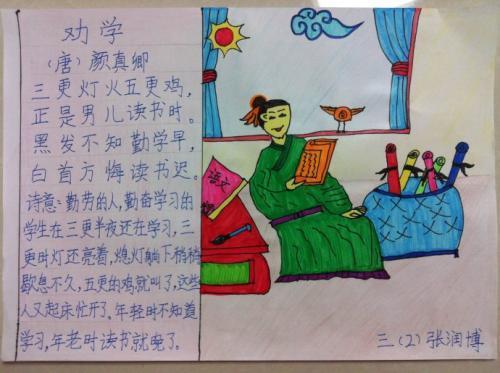 劝学
（唐）颜真卿
三更灯火五更鸡，
正是男儿读书时。
黑发不知勤学早，
白首方悔读书迟。
诗意：勤劳的人，勤奋学习的
学生在三更半夜还在学习，三
更时灯还亮着，熄灯躺下稍稍
歇息不久，五更的鸡就叫了，这些
人又起床忙开了。年轻时不知道
学习，年老时读书就晚了。
语文
三（2）张润博